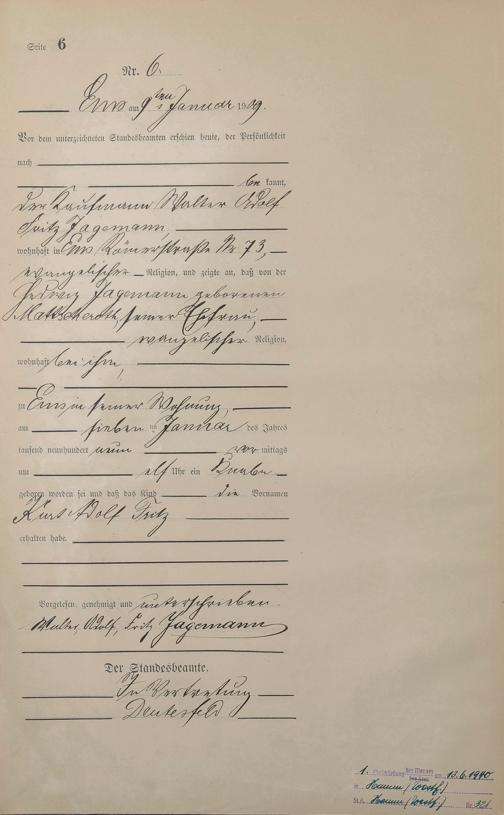 Seite 6
Nr. 6.
Ems am 9ten Januar 1909.
Vor dem unterzeichneten Standesbeamten erschien heute, der Persönlichkeit
nach
be kannt,
der Kaufmann Walter Adolf
Fritz Jagemann,
wohnhaft in Ems Römerstraße Nr 73,
evangelischer Religion, und zeigte an, daß von der
Hedwig Jagemann geborenen
seiner Ehefrau,
evangelischer Religion,
wohnhaft bei ihm,
zu Ems in seiner Wohnung,
am sieben ten Januar des Jahres
tausend neunhundert neun vor mittags
um elf Uhr ein Knabe
geboren worden sei und daß das Kind die Vornamen
Kurt Adolf Fritz
erhalten habe.
Vorgelesen, genehmigt und unterschrieben.
Walter, Adolf, Fritz Jagemann
Der Standesbeamte.
In Vertretung
1. Eheschließung des 13.6.1940
in Hamm (Westf.)
St.A. Hamm (Westf.) Nr 321